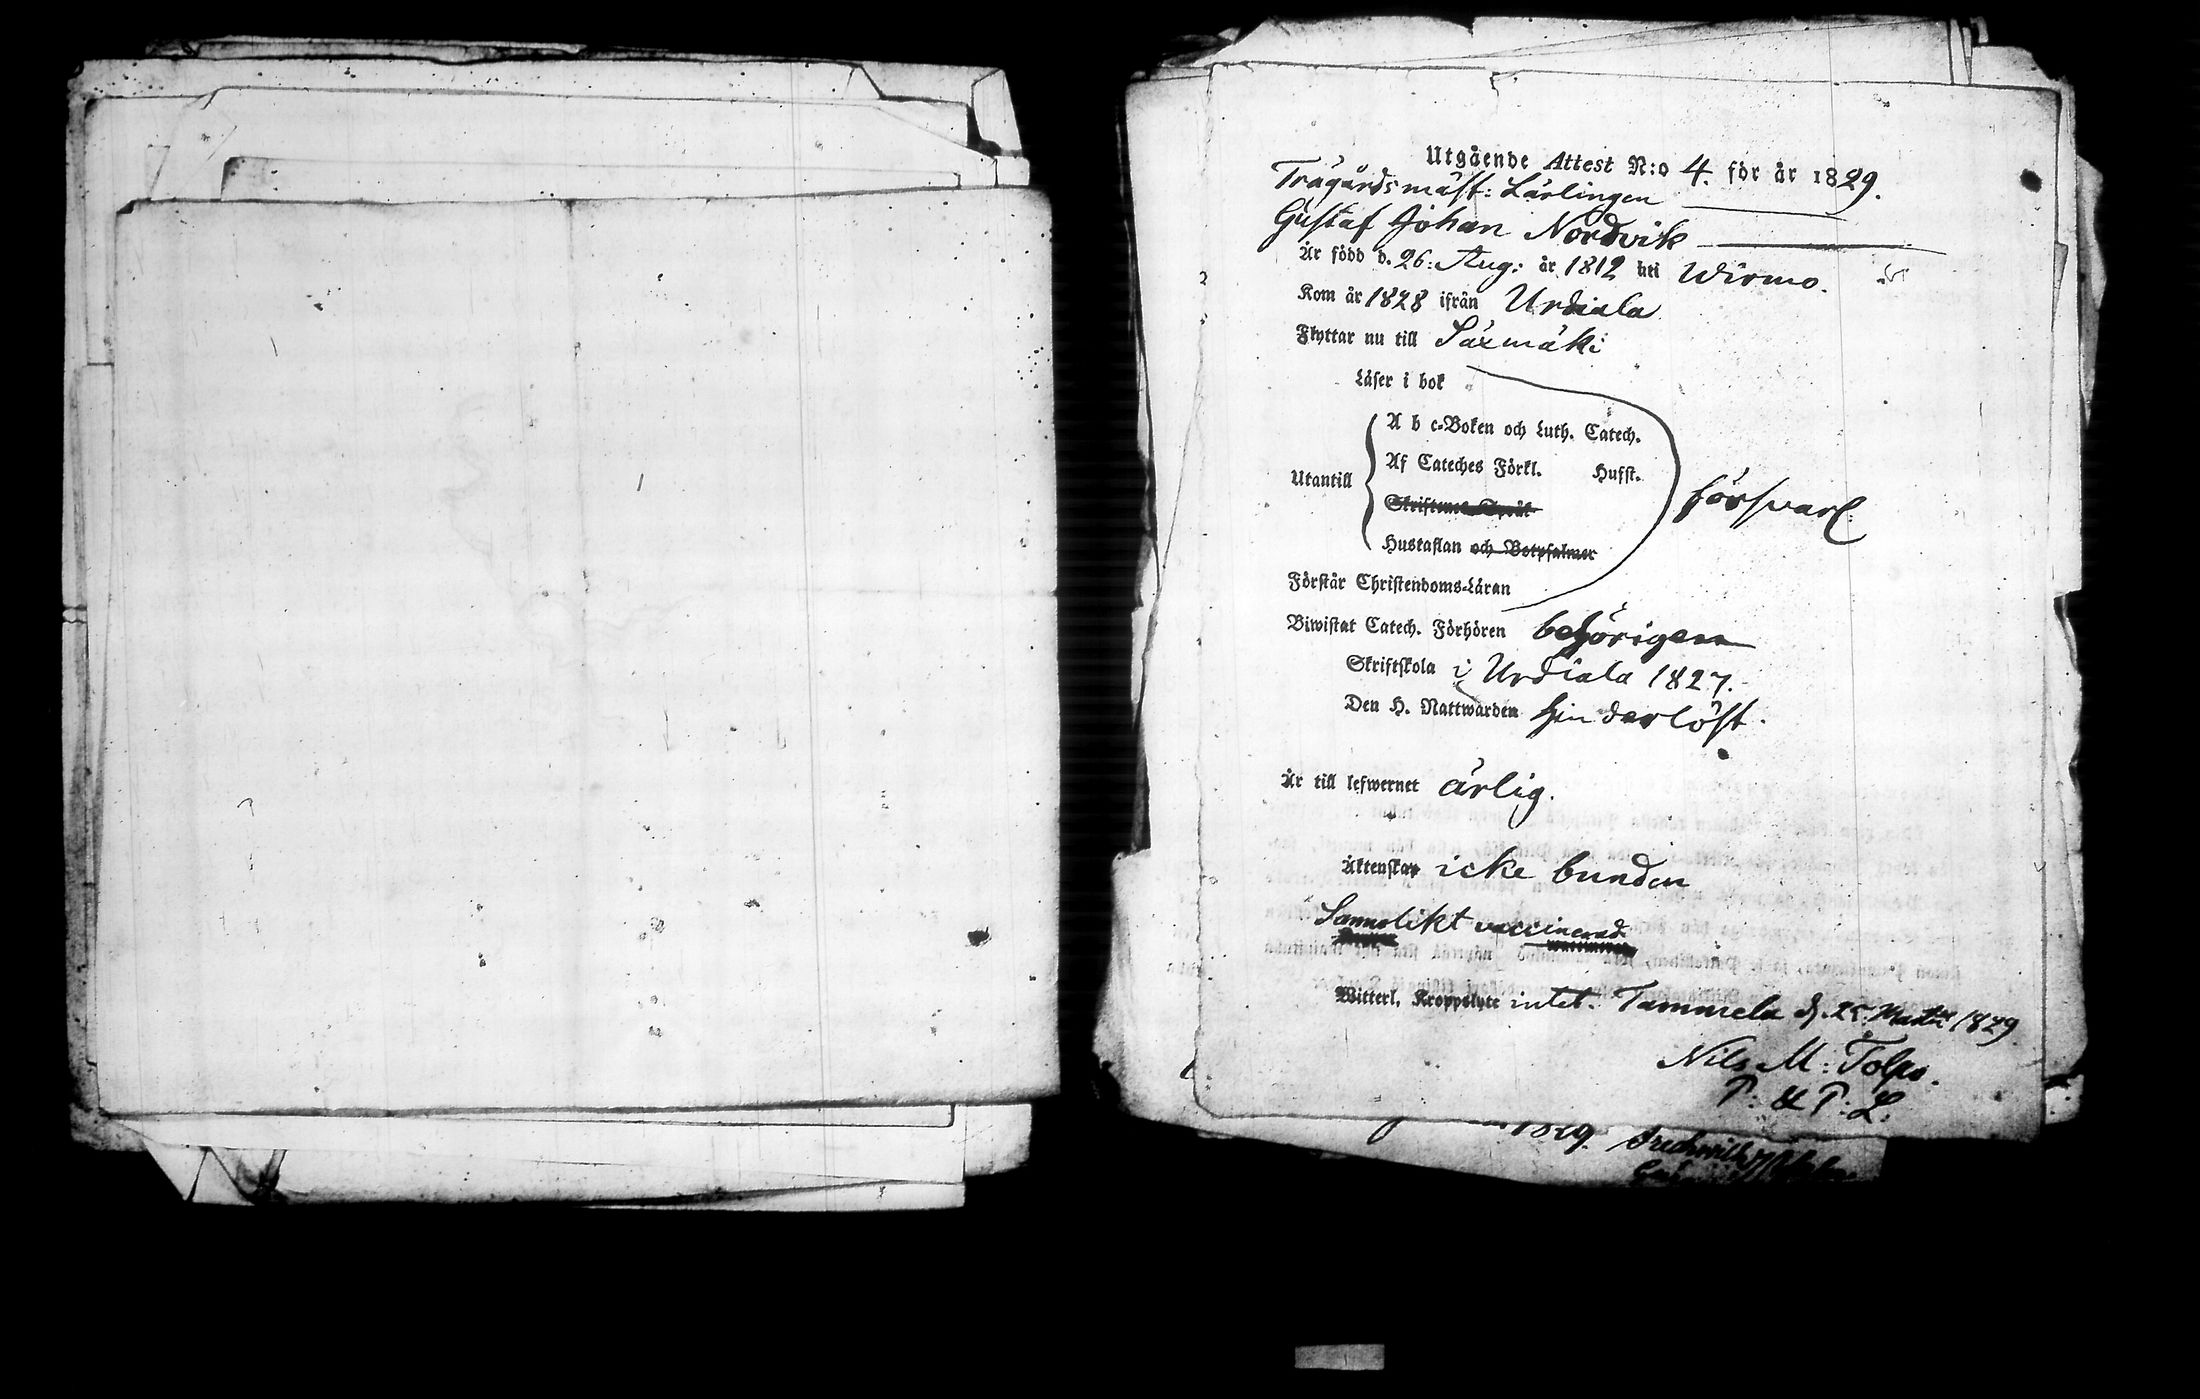 Utgående Attest N:o 4. för år 1829.
Trägårdsmäst: Lärlingen
Gustaf Johan Nordvik
Är född d. 26: Aug: år 1812 uti Wirmo.
Kom år 1828 ifrån Urdiala
Flyttar nu till Säxmäki
Läser i bok
A b c-Boken och Luth. Catech.
Af Cateches Förkl. Hufst.
Utantill
försvarl:
Skriftenes Språk
Hustaflan och Botpsalmer
Förstår Christendoms-Läran
Biwistat Catech. Förhören behörigen
Skriftskola i Urdiala 1827.
Den H. Nattwarden hinderlöst.
Är till lefwernet ärlig.
Äktenskap icke bunden
Sannolikt vaccinerad.
Witterl. Kroppslyte intet. Tammela d. 25 Martii 1829
Nils M: Tolpo.
P: & P: L:
1829.